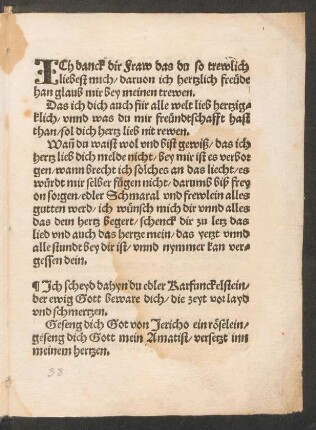 ICh danck dir Fraw das du so trewlich
liebest mich/ daruon ich hertzlich freüde
han glaub mir bey meinen trewen.
Das ich dich auch für alle welt lieb hertzig-
klich/ vnnd was du mir freündtschafft hast
than/ sol dich hertz lieb nit rewen.
Wañ du waist wol vnd bist gewiß/ das ich
hertz lieb dich melde nicht/ bey mir ist es verbor
gen/ wann brecht ich solches an das liecht/ es
würdt mir selber fügen nicht/ darumb biß frey
on sorgen/ edler Schmaral vnd frewlein alles
gutten werd/ ich wünsch mich dir vnnd alles
das dein hertz begert/ schenck dir zu letz das
lied vnd auch das hertze mein/ das yetzt vnnd
alle stundt bey dir ist/ vnnd nymmer kan ver-
gessen dein.
¶ Ich scheyd dahyn du edler Karfunckelstein/
der ewig Gott beware dich/ die zeyt vor layd
vnd schmertzen.
Geseng dich Got von Jericho ein röselein/
geseng dich Gott mein Amatist/ versetzt inn
meinem hertzen.
38